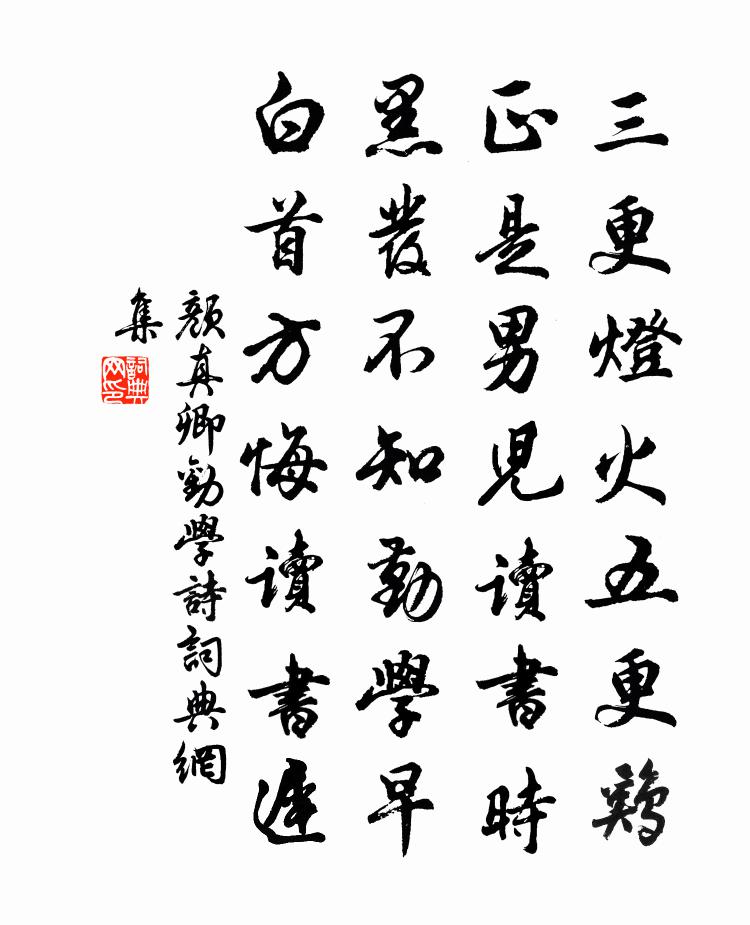 三更燈火五更鷄
正是男児讀書時
黑發不知勤學早
白首方悔讀書遲
顔真卿勸學詩詞典網
集
詞典
网印